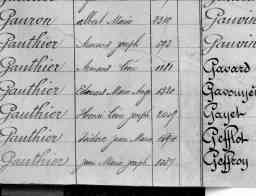 Gauron Albert Marie 2310 Gauvin
Gauthier Armand Joseph 593 Gauvin
Gauthier Armand Léon 1181 Gavard
Gauthier Marie 1320 Gavouyer
Gauthier Henri Léon Joseph Gayet
Gauthier Isidore Jean Marie Gefflot
Gauthier Jean Marie Joseph 1057 Geffroy